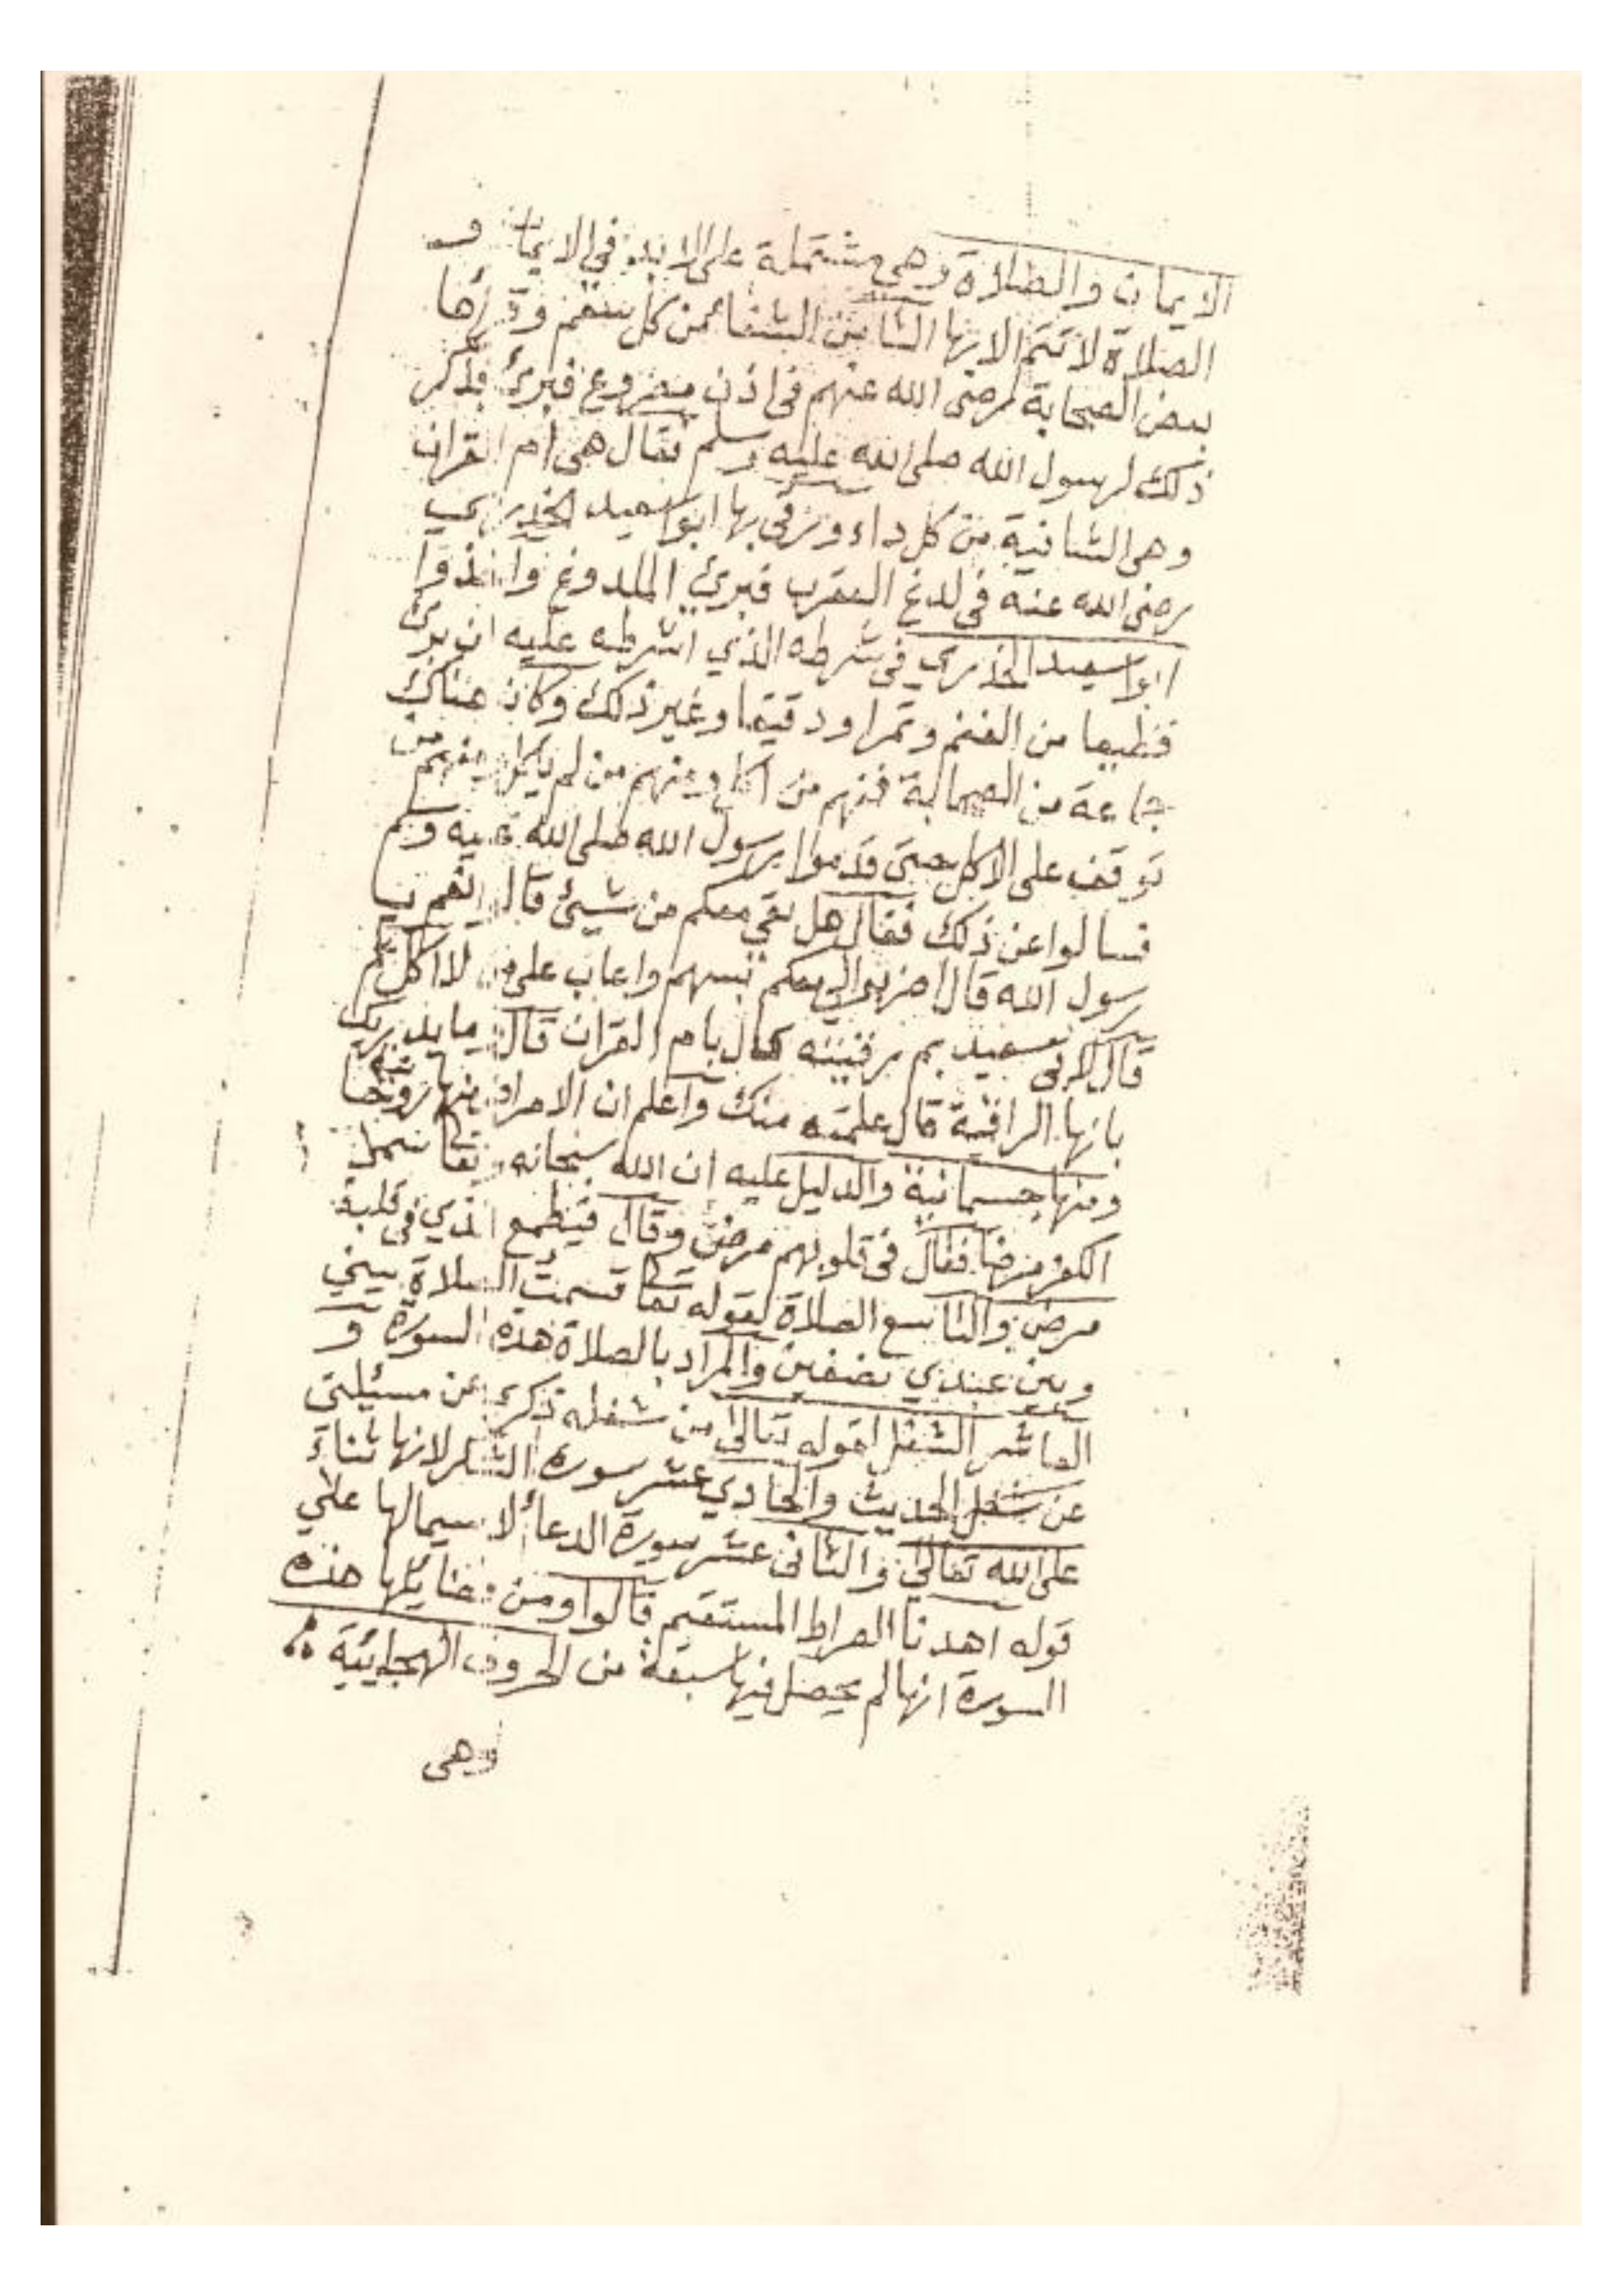 الايمان والصلاة وهي مشتملة على الابد في الايمان و
الصلاة لا تتم الا بها الثامن الشفا من كل سقم وقرأها
بعض الصحابة رضى الله عنهم فى اذن مصروع فبرئ فذكر
ذلك لرسول الله صلى الله عليه وسلم فقال هى ام القران
وهى الشافية من كل داء ورقى بها ابوا سعيد الخدري
رضى الله عنه في لدغ العقرب فبرئ الملدوغ واخذوا
ابوا سعيد الخدري في شرطه الذي اشرطه عليه ان برئ
قطيعا من الغنم وتمرا ودقيقا وغير ذلك وكان هناك
جماعة من الصحابة فمنهم من اكل ومنهم من لم ياكل ومنهم من
توقف على الاكل حتى قدموا برسول الله صلى الله عليه وسلم
فسالوا عن ذلك فقال هل بقي معكم من شيئ قال نعم يا
رسول الله قال اضربوا لي معكم بسهم واعاب على من لا اكل
قال لابى سعيد بم رقيته قال بام القران قال ما يدريك
بانها الراقية قال علمته منك واعلم ان الامراض منها روحا
ومنها جسمانية والدليل عليه ان الله سبحانه وتعا سمى
الكفر مرضا فقال فى قلوبهم مرض وقال فيطمع الذي في قلبه
مرض والتاسع الصلاة لقوله تعا قسمت الصلاة بيني
وبين عبدي نصفين والمراد بالصلاة هذه السورة و
العاشر الشغل لقوله تعالى من شغله ذكري عن مسئلتى
عن شغل الحديث والحادي عشر سورة الشكر لانها ثناء
على الله تعالى والثانى عشر سورة الدعاء لا سيمالها على
قوله اهدنا الصراط المستقيم قالوا ومن فضايلها هذه
السورة انها لم يحصل فيها سبعة من الحروف الهجائية
وهى